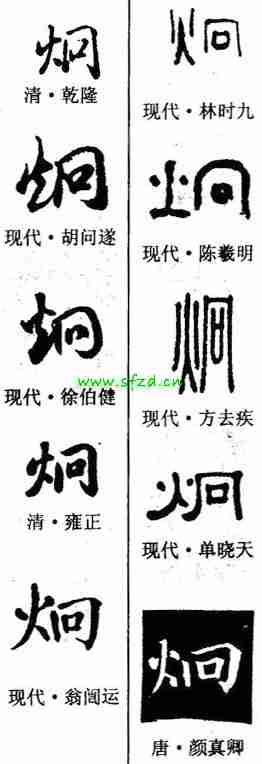 炯
清·乾隆
炯
现代·胡问遂
炯
现代·徐伯健
炯
清·雍正
炯
现代·翁闿运
炯
现代·林时九
炯
现代·陈羲明
炯
现代·方去疾
炯
现代·单晓天
炯
唐·颜真卿
www.sfzd.cn